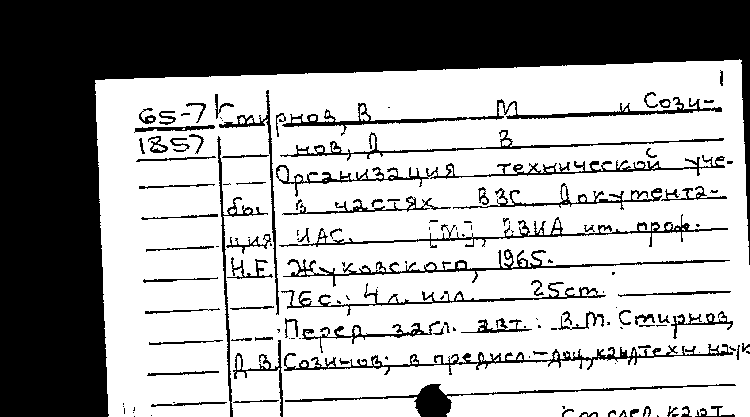 1
65-7 Смирнов, В М и Сози-
1857 нов, Д В
Организация технической уче-
бы в частях ВВС Документа-
ция ИАС. [М.], ВВИА им. проф.
Н.Е. Жуковского, 1965.
76 с.; 4 л. илл. 25cm.
Перед загл. авт.: В.М. Смирнов,
Д.В. Созинов; в предисл.-доц., канд техн наук
См след. карт